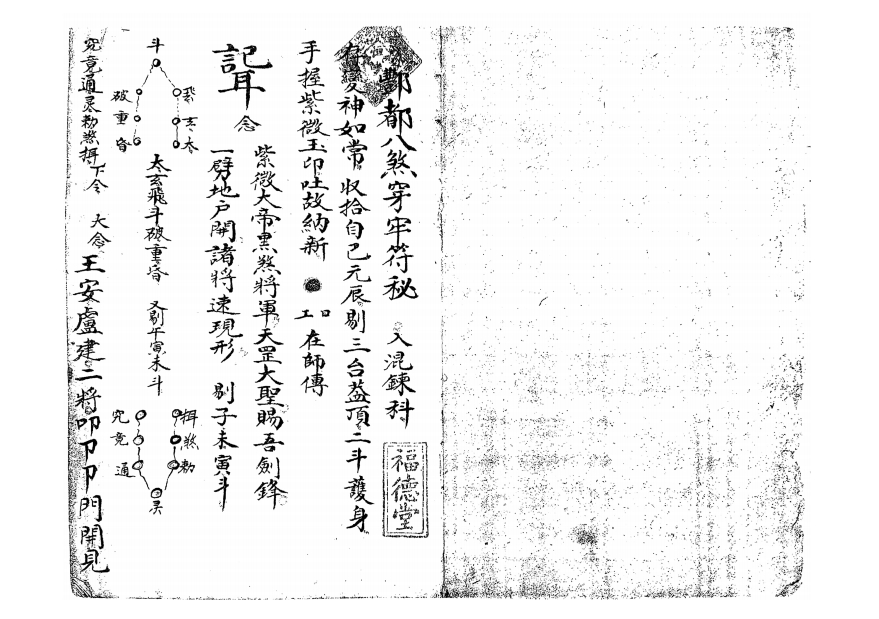 酆都八煞穿牢符秘 入混鍊科
福德堂
變神如常 収拾自己元辰 剔三台蓋頂 二斗護身
手握紫微玉印吐故納新 工口 在師傳
念 紫微大帝黑煞將軍天罡大聖賜吾劍鋒
一劈地户開諸將速現形 剔子未寅斗
斗
破重昏
飛玄太
太玄飛斗破重昏 又剔午寅未斗
究竟通
揖煞勅
灵
究竟通灵勅煞揖 下令 大念
王安盧建二將叩卩卩門開見